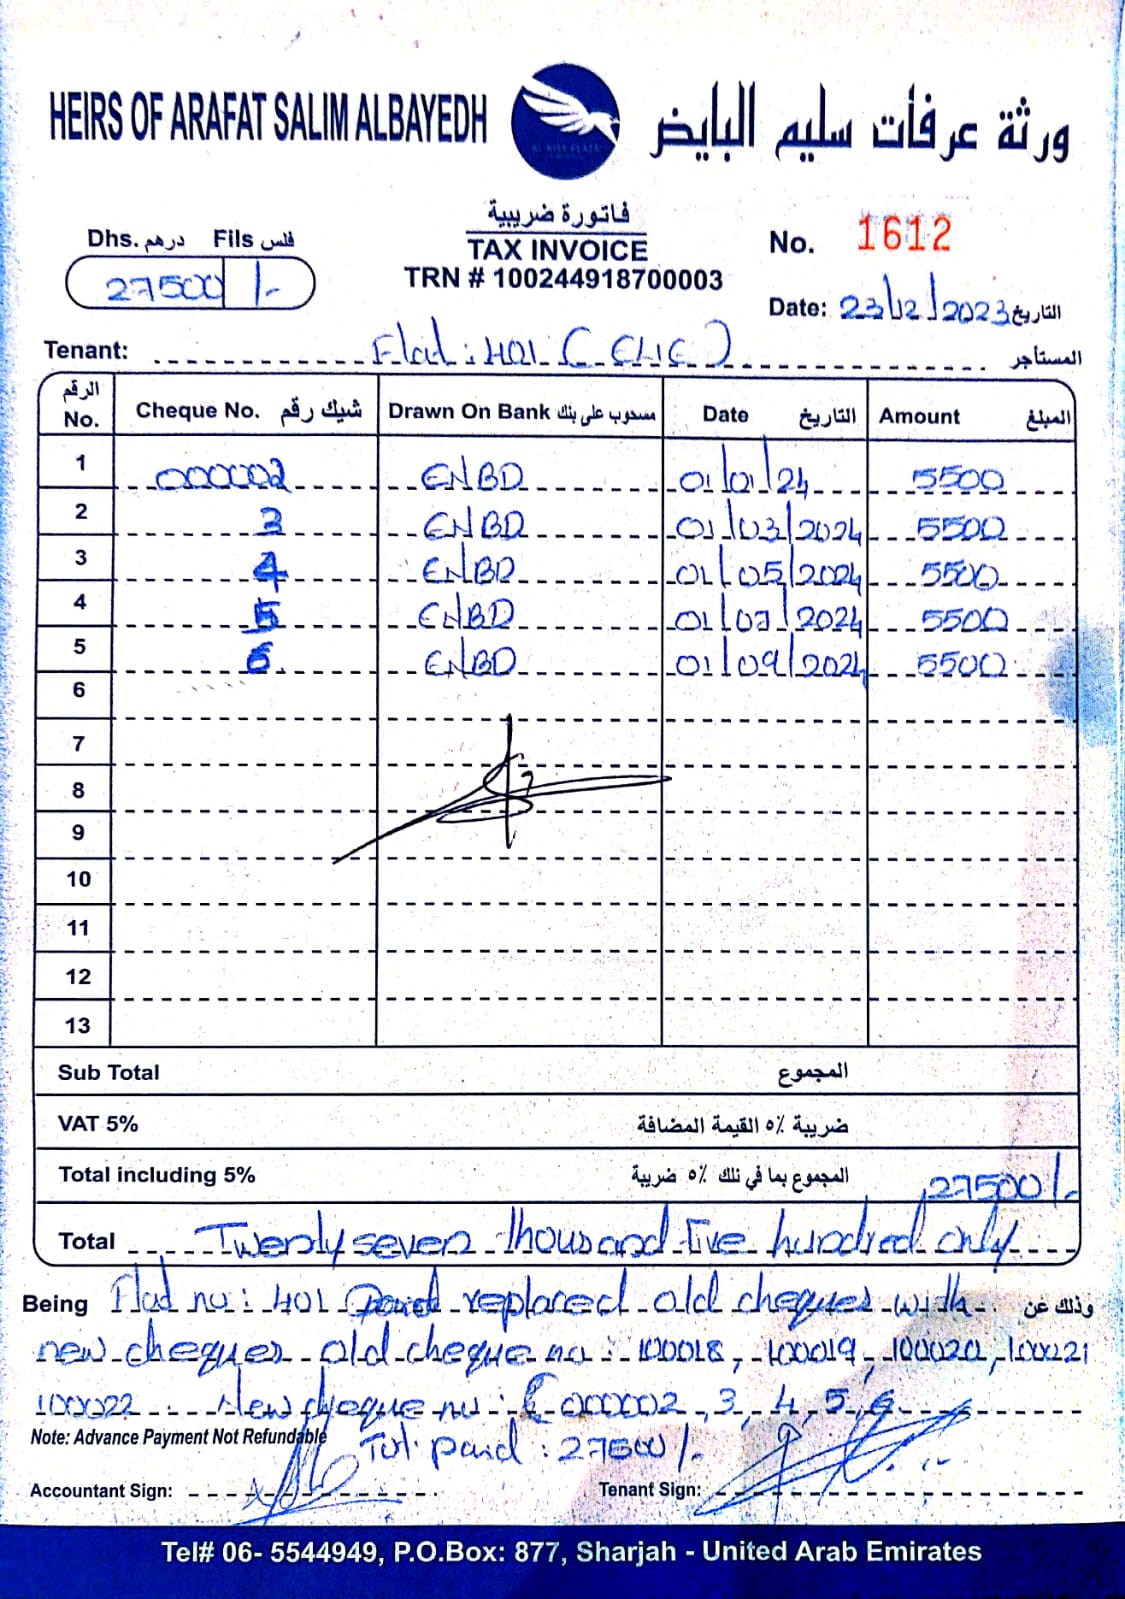 HEIRS OF ARAFAT SALIM ALBAYEDH
ورثة عرفات سليم البايض
AL RISE PLAZA
فاتورة ضريبية
TAX INVOICE
TRN # 100244918700003
Dhs. درهم Fils فلس
27500 /-
No. 1612
Date: 23/12/2023 التاريخ
Tenant: Flat: 401 المستأجر
الرقم No. Cheque No. شيك رقم Drawn On Bank مسحوب على بنك Date التاريخ Amount المبلغ
1 000002 ENBD 01/01/24 5500
2 3 ENBD 01/03/2024 5500
3 4 ENBD 01/05/2024 5500
4 5 ENBD 01/07/2024 5500
5 6 ENBD 01/09/2024 5500
6
7
8
9
10
11
12
13
Sub Total المجموع
VAT 5% ضريبة ٥٪ القيمة المضافة
Total including 5% المجموع بما في ذلك ٥٪ ضريبة 27500/-
Total Twenty seven thousand five hundred only
Being Flat no: 401 replaced old cheques with وذلك عن
new cheques old cheque no: 100018, 100019, 100020, 100021
100022 New cheque no: 000002, 3, 4, 5, 6
Note: Advance Payment Not Refundable
Tot: paid: 27500/-
Accountant Sign:
Tenant Sign:
Tel# 06- 5544949, P.O.Box: 877, Sharjah - United Arab Emirates